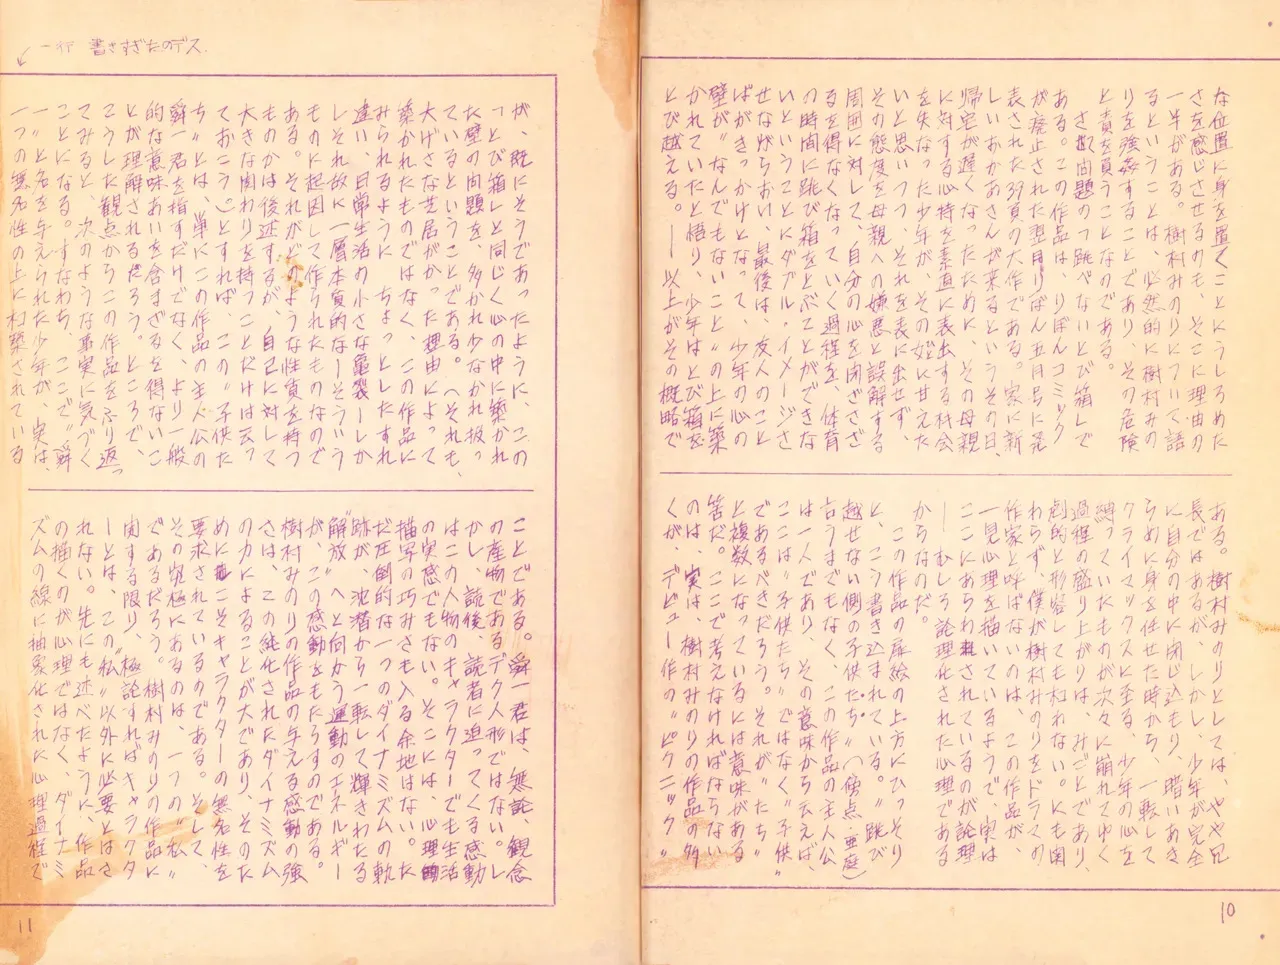 な位置に身を置くことにうしろめた
さを感じさせるのも、そこに理由の
一半がある。樹村みのりについて語
るということは、必然的に樹村みの
りを強姦することであり、その危険
と責を負うことなのである。
さて問題の「跳べないとび箱」で
ある。この作品は、りぼんコミック
が廃止された翌月りぼん五月号に発
表された39頁の大作である。家に新
しいおかあさんが来るというその日、
帰宅が遅くなったために、その母親
に対する心持を素直に表出する機会
を失なった少年が、その姉に甘えた
いと思いつつ、それを表に出せず、
その態度を母親への嫌悪と誤解する
周囲に対して、自分の心を閉ざさざ
るを得なくなっていく過程を、体育
の時間に跳び箱をとぶことができな
いということにダブル・イメージさ
せながらおい、最後は、友人のこと
ばがきっかけとなって、少年の心の
壁が〝なんでもないこと〟の上に築
かれていたと悟り、少年はとび箱を
とび越える。――以上がその概略で
ある。樹村みのりとしては、やや冗
長ではあるが、少年が完全
に自分の中に閉じ込もり、暗いあき
らめに身を任せた時から、一転して
クライマックスに至る、少年の心を
縛っていたものが次々に崩れてゆく
過程の盛り上がりは、みごとであり、
劇的と形容しても構わない。にも関
わらず、僕が樹村みのりをドラマの
作家と呼ばないのは、この作品が、
一見心理を描いているようで、実は
ここにあらわされているのが論理
――むしろ論理化された心理である
からなのだ。
この作品の扉絵の上方にひっそり
と、こう書き込まれている。〝跳び
越せない側の子供たち〟(傍点・亜庭)
言うまでもなく、この作品の主人公
は一人であり、その意味から云えば、
ここは〝子供たち〟ではなく〝子供〟
であるべきだろう。それが〝たち〟
と複数になっているには意味がある
筈だ。ここで考えなければならない
のが、実は、樹村みのりの作品の多
くが、デビュー作の〝ピクニック〟
10
一行 書きすぎたのデス.
が、既にそうであったように、この
「とび箱」と同じく心の中に築かれ
た壁の問題を、多かれ少なかれ扱っ
ているということである。へそれも、
大げさな芝居がかった理由によって
築かれたものではなく、この作品に
みられるように、ちょっとしたすれ
違い、日常生活の小さな亀裂――しか
しそれ故に一層本質的な――そういう
ものに起因して作られたものなので
ある。それがどのような性質を持つ
ものかは後述するが、自己に対して
大きな関わりを持つことだけは云っ
ておこう)とすれば、この〝子供た
ち〟とは、単にこの作品の主人公の
舜一君を指すだけでなく、より一般
的な意味あいを含まざるを得ないこ
とが理解されるだろう。ところで、
こうした観点からこの作品をふり返っ
てみると、次のような事実に気づく
ことになる。すなわち、ここで〝舜
一〟と名を与えられた少年が、実は、
一つの無名性の上に構築されている
ことである。舜一君は、無論、観念
の産物であるデク人形ではない。し
かし、読後、読者に迫ってくる感動
はこの人物のキャラクターでも生活
の実感でもない。そこには、心理的
描写の巧みさも入る余地はない。た
だ圧倒的な一つのダイナミズムの軌
跡が、沈潜から一転して輝きわたる
〝解放〟へと向かう運動のエネルギー
が、この感動をもたらすのである。
樹村みのりの作品の与える感動の強
さは、この純化されたダイナミズム
の力によることが大であり、そのた
めにこそキャラクターの無名性を
要求されているのである。そして、
その究極にあるのは、一つの〝私〟
であるだろう。樹村みのりの作品に
関する限り、極論すればキャラクタ
ーとは、この〝私〟以外に必要とはさ
れない。先にも述べたように、作品
の描くのが心理ではなく、ダイナミ
ズムの線に抽象化された心理過程で
11